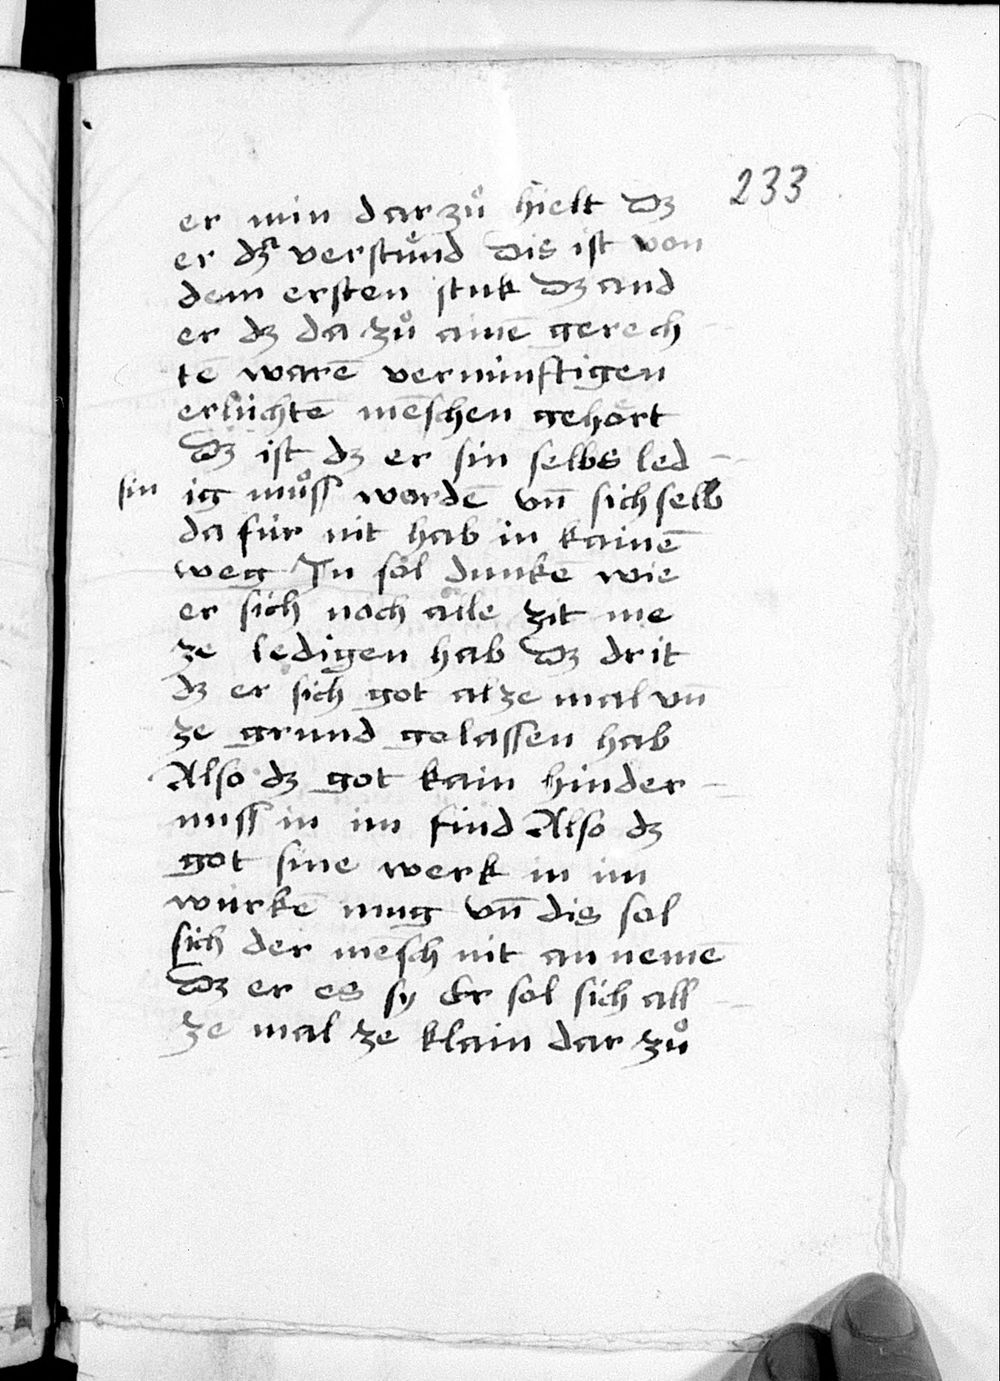 233
er min dar zuͦ hielt dz
er dz verstuͤnd dis ist von
dem ersten stuk dz and
er dz da zuͦ ainē gerech
tē warē vernúnftigen
erlúchtē mēschen gehoͤrt
dz ist dz er sin selbs led
sin ig muͦss werdē vn̄ sich selb
da fúr nit hab in kainē
weg In sol dunkē wie
er sich noch alle zit me
ze ledigen hab dz drit
dz er sich got alze mal vn̄
ze grund gelassen hab
Also dz got kain hinder
nuss in im find Also dz
got sine werk in im
wúrkē mug vn̄ dis sol
sich der mēsch nit an nemē
dz er es sy Er sol sich all
ze mal ze klain dar zuͦ